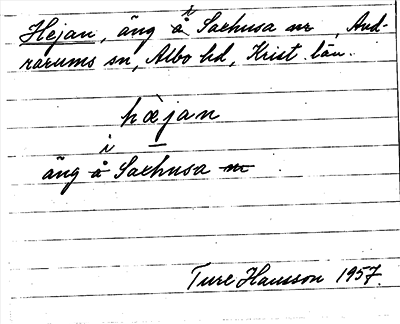 Hejan, äng i Saxhusa nr , And-
rarums sn, Albo hd, Krist. län.
hæjan
äng i Saxhusa nr
Ture Hansson 1957.